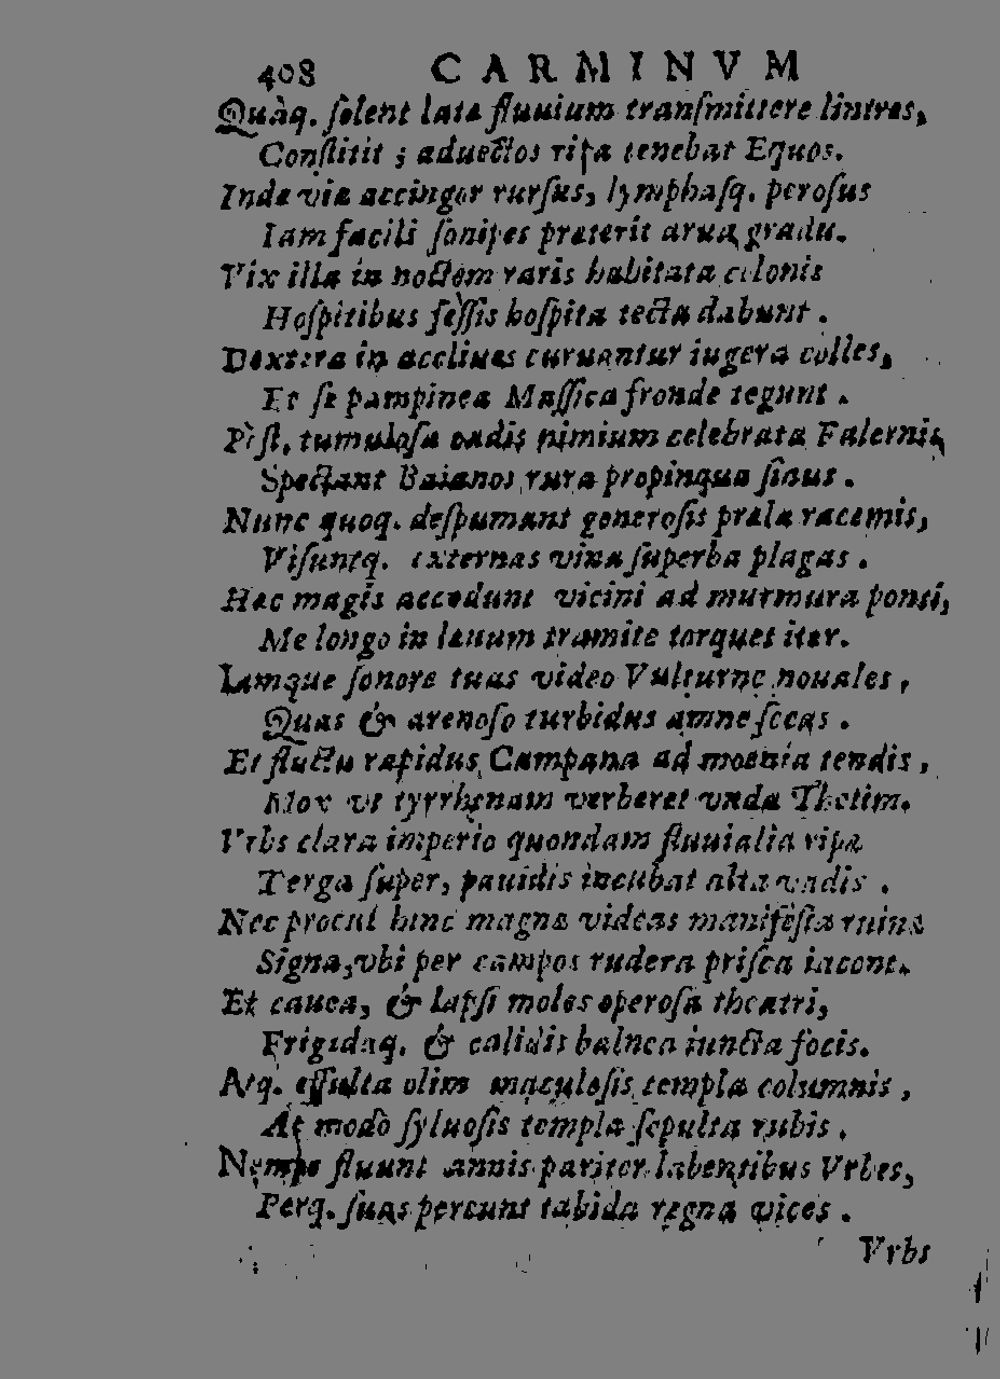 408 CARMINVM
Quàq. ſolent late fluuium tranſmittere lintres,
Conſtitit ; aduectos ripa tenebat Equos.
Inde viæ accingor rurſus, lymphaſq. peroſus
Iam facili ſonipes præterit arua gradu.
Vix illa in noctem raris habitata colonis
Hoſpitibus feſſis hoſpita tecta dabunt .
Dextera in accliues curuantur iugera colles,
Et ſe pampinea Maſſica fronde tegunt .
Pòſt, tumuloſa cadis nimium celebrata Falernis
Spectant Baianos rura propinqua ſinus .
Nunc quoq. deſpumant generoſis præla racemis,
Viſuntq. externas vina ſuperba plagas .
Hæc magis accedunt vicini ad murmura ponti,
Me longo in læuum tramite torquet iter.
Iamque ſonore tuas video Vulturne nouales ,
Quas & arenoſo turbidus amne ſecas .
Et fluctu rapidus Campana ad moenia tendis ,
Mox vt tyrrhenam verberet vnda Thetim.
Vrbs clara imperio quondam fluuialia ripæ
Terga ſuper, pauidis incubat alta vadis .
Nec procul hinc magnæ videas manifeſta ruinæ
Signa, vbi per campos rudera priſca iacent.
Et cauea, & lapſi moles operoſa theatri,
Frigidaq. & calidis balnea iuncta focis.
Atq. effulta olim maculoſis templa columnis ,
At modò ſyluoſis templa ſepulta rubis .
Nempe fluunt annis pariter labentibus Vrbes,
Perq. ſuas pereunt tabida regna vices .
Vrbs